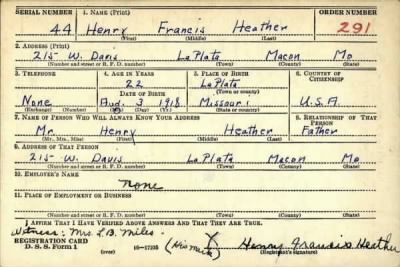 SERIAL NUMBER 1. NAME (Print) ORDER NUMBER
44 Henry Francis Heather 291
(First) (Middle) (Last)
2. ADDRESS (Print)
215 W. Davis LaPlata Macon Mo
(Number and street or R. F. D. number) (Town) (County) (State)
3. TELEPHONE 4. AGE IN YEARS 5. PLACE OF BIRTH 6. COUNTRY OF CITIZENSHIP
22 LaPlata
DATE OF BIRTH (Town or county)
None Aug. 3 1918 Missouri U.S.A.
(Exchange) (Number) (Mo.) (Day) (Yr.) (State or country)
7. NAME OF PERSON WHO WILL ALWAYS KNOW YOUR ADDRESS 8. RELATIONSHIP OF THAT PERSON
Mr. Henry Heather Father
(Mr., Mrs., Miss) (First) (Middle) (Last)
9. ADDRESS OF THAT PERSON
215 W. Davis LaPlata Macon Mo
(Number and street or R. F. D. number) (Town) (County) (State)
10. EMPLOYER'S NAME
None
11. PLACE OF EMPLOYMENT OR BUSINESS
(Number and street or R. F. D. number) (Town) (County) (State)
I AFFIRM THAT I HAVE VERIFIED ABOVE ANSWERS AND THAT THEY ARE TRUE.
Witness: Mrs. L.B. Miles. (His Mark) X Henry Francis Heather
REGISTRATION CARD
D. S. S. Form 1 (over) 16-17105 (Registrant's signature)